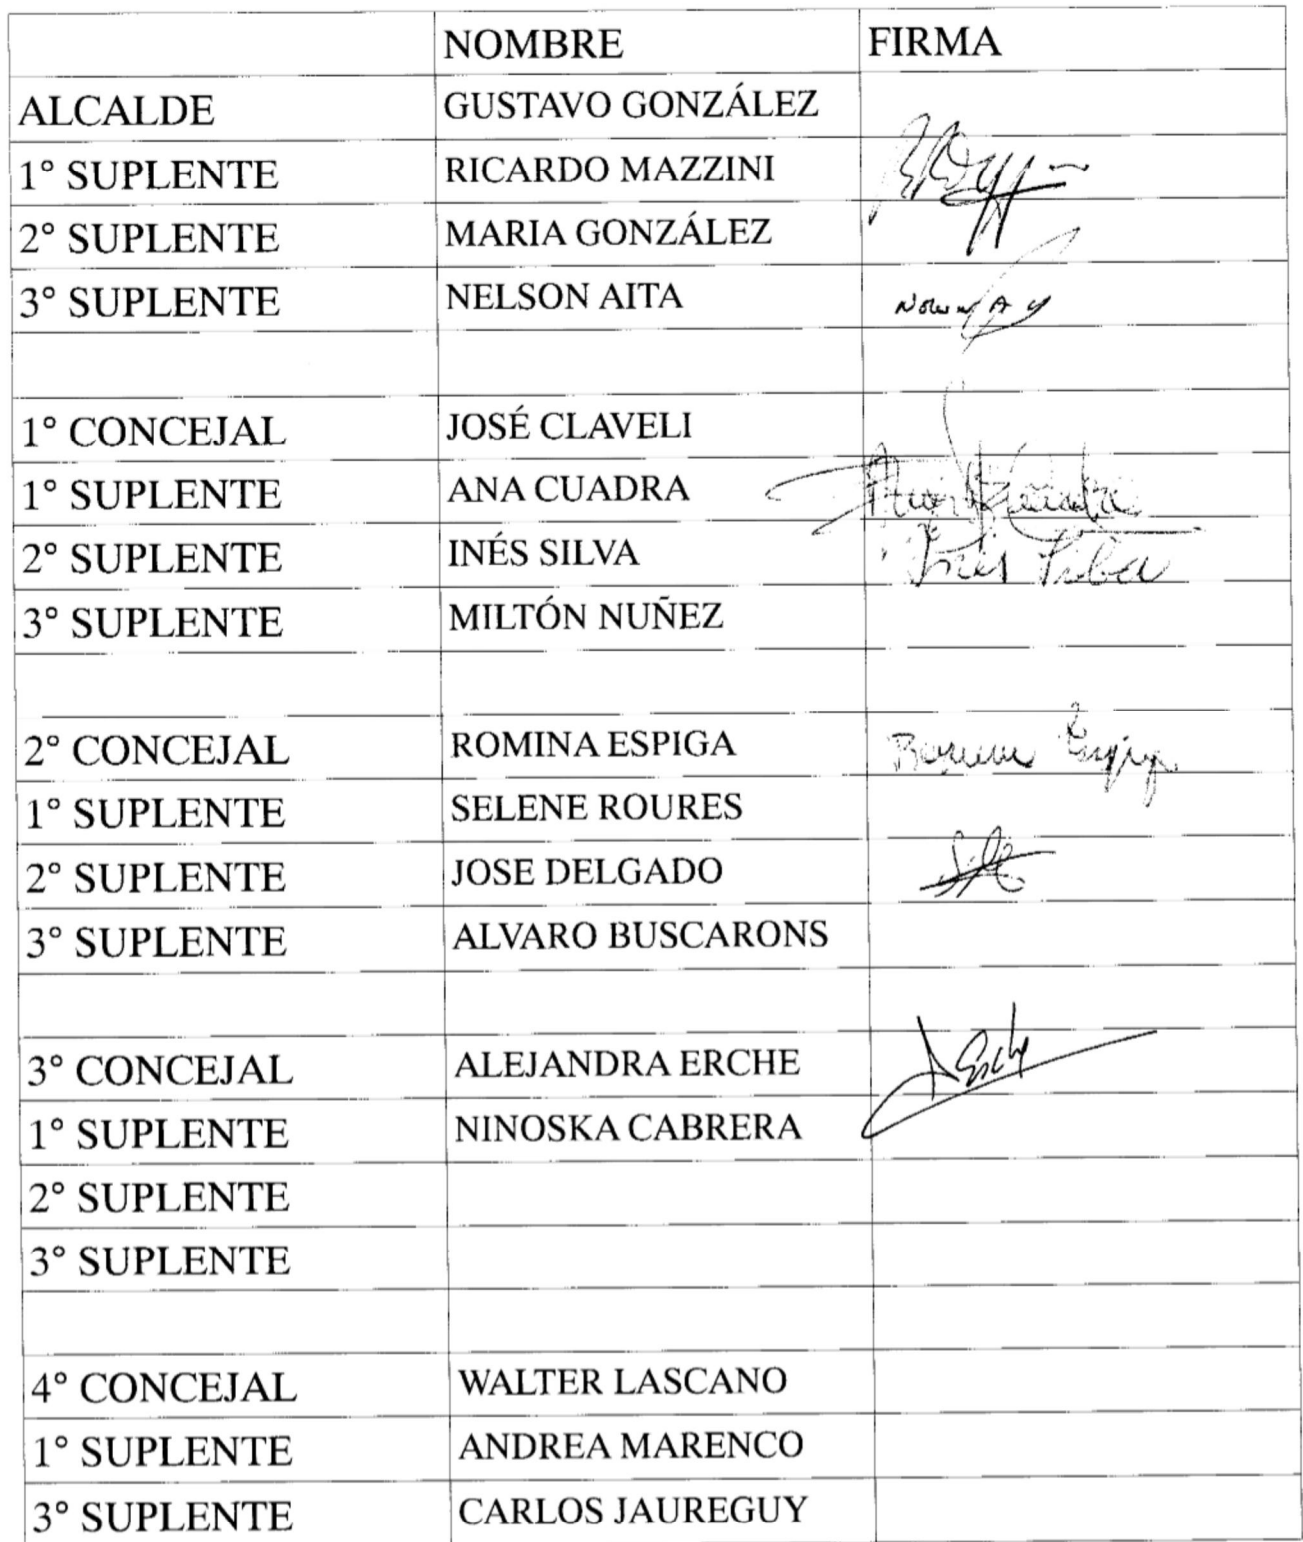 NOMBRE FIRMA
ALCALDE GUSTAVO GONZÁLEZ
1° SUPLENTE RICARDO MAZZINI
2° SUPLENTE MARIA GONZÁLEZ
3° SUPLENTE NELSON AITA
1° CONCEJAL JOSÉ CLAVELI
1° SUPLENTE ANA CUADRA
2° SUPLENTE INÉS SILVA Inés Silva
3° SUPLENTE MILTÓN NUÑEZ
2° CONCEJAL ROMINA ESPIGA
1° SUPLENTE SELENE ROURES
2° SUPLENTE JOSE DELGADO
3° SUPLENTE ALVARO BUSCARONS
3° CONCEJAL ALEJANDRA ERCHE
1° SUPLENTE NINOSKA CABRERA
2° SUPLENTE
3° SUPLENTE
4° CONCEJAL WALTER LASCANO
1° SUPLENTE ANDREA MARENCO
3° SUPLENTE CARLOS JAUREGUY